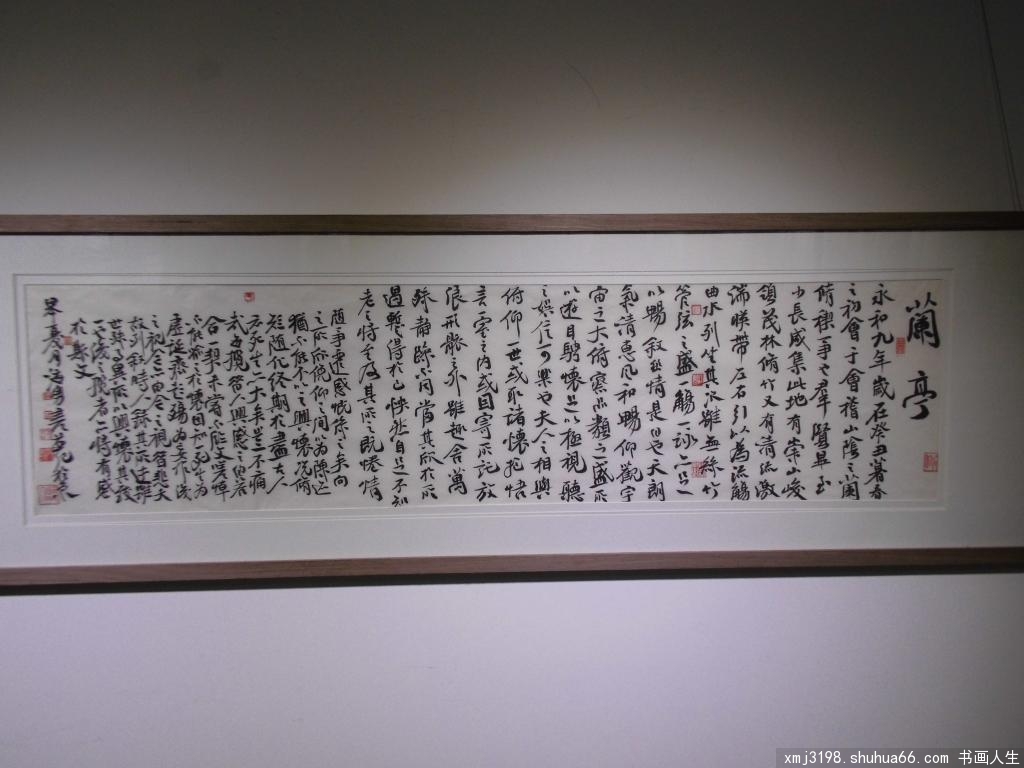 蘭亭
永和九年歲在癸丑暮春
之初會于會稽山陰之蘭
脩禊事也羣賢畢至
少長咸集此地有崇山峻
領茂林脩竹又有清流激
湍暎帶左右引以為流觴
曲水列坐其次雖無絲竹
管弦之盛一觴一詠亦足
以暢叙幽情是日也天朗
氣清惠風和暢仰觀宇
宙之大俯察品類之盛所
以遊目騁懷足以極視聽
之娛信可樂也夫人之相與
俯仰一世或取諸懷抱悟
言室之內或因寄所託放
浪形骸之外雖趣舍萬
殊静躁不同當其欣於所
遇暫得於己怏然自足不知
老之將至及其所之既惓情
隨事遷感慨係之矣向
之所欣俛仰之間為陳迹
猶不能不以之興懷況脩
短隨化終期於盡古人
云死生一大矣豈不痛
哉每攬昔人興感之由若
合一契未嘗不臨文嗟悼
不能喻之於懷固知一死生為
虛誕齊彭殤為妄作後
之視今亦由今之視昔悲夫
故列叙時人錄其所述雖
世殊事異所以興懷其致
一也後之攬者亦將有感
於斯文
xmj3198.shuhua66.com 书画人生